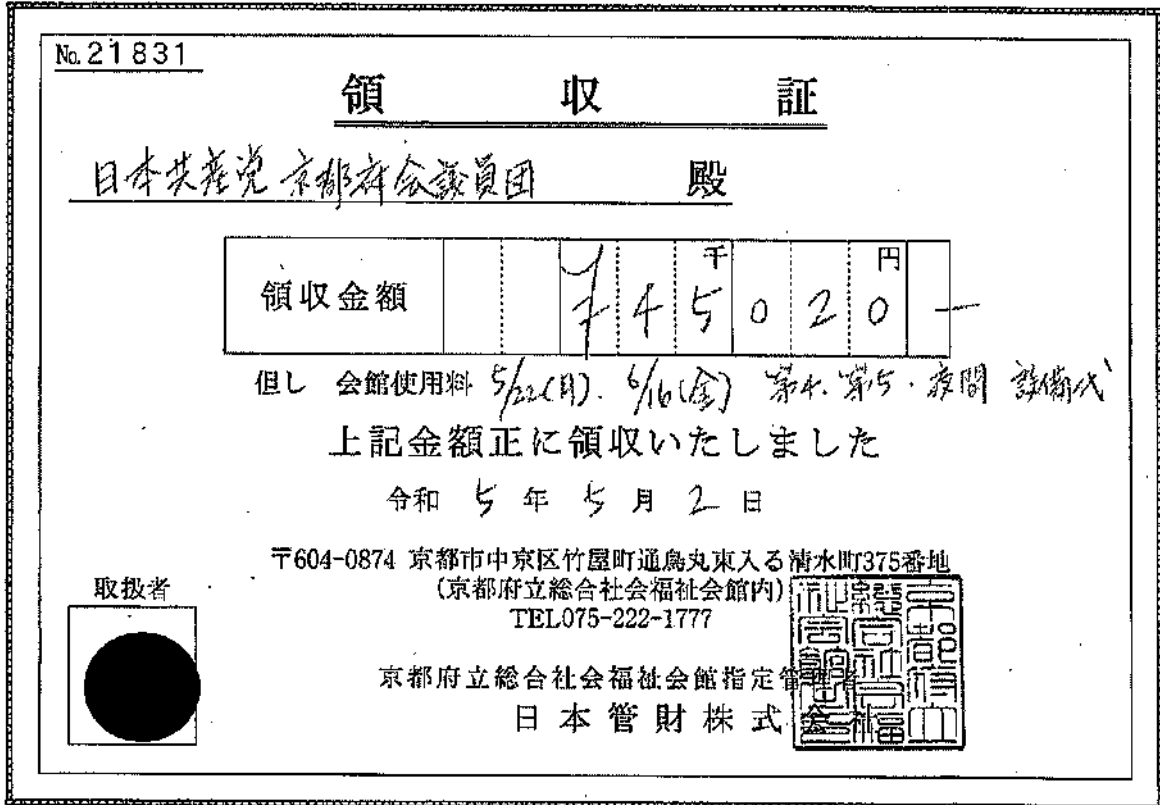 No.21831
領収証
日本共産党京都府会議員団 殿
千 円
領収金額 ¥45020-
但し 会館使用料 5/22(月). 6/16(金) 第4.第5.夜間 設備代
上記金額正に領収いたしました
令和 5 年 5 月 2 日
〒604-0874 京都市中京区竹屋町通烏丸東入る清水町375番地
(京都府立総合社会福祉会館内)
TEL075-222-1777
取扱者
京都府立総合社会福祉会館指定管理者
日本管財株式会社